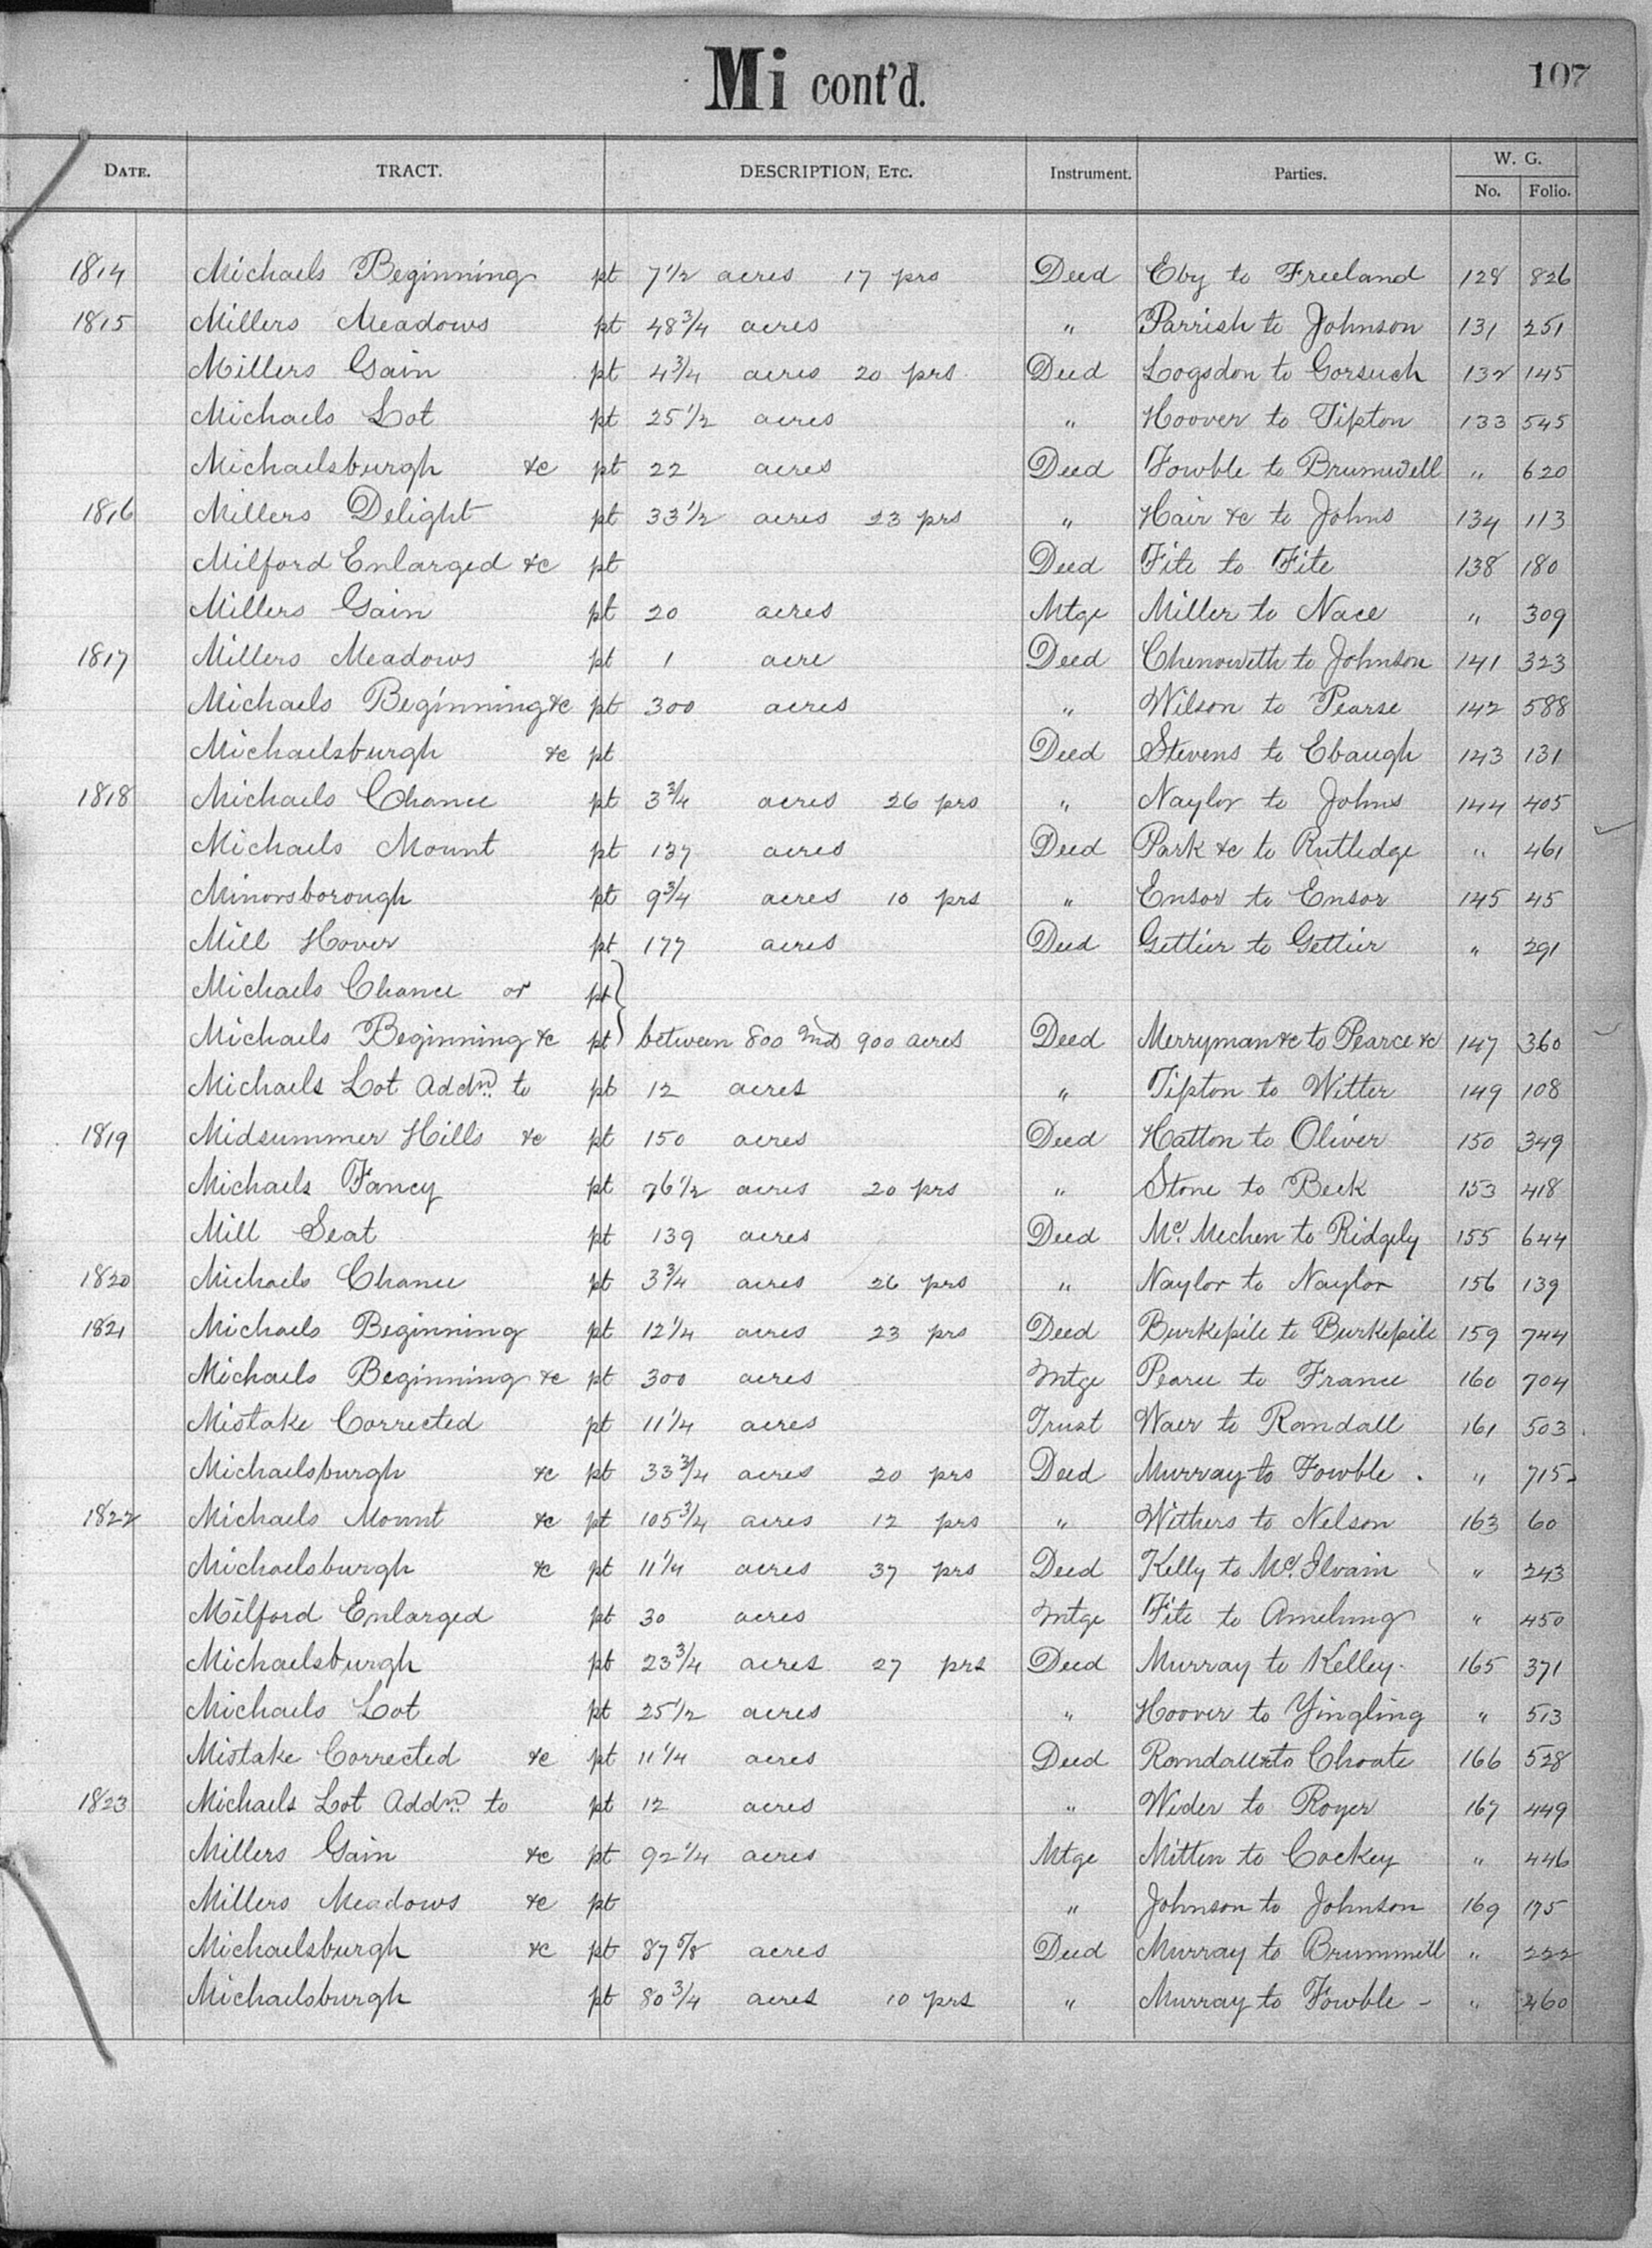 Mi cont'd.
107
DATE. TRACT. DESCRIPTION, ETC. Instrument. Parties. W. G.
No. Folio.
1814 Michaels Beginning pt 7 1/2 acres 17 prs Deed Eby to Freeland 128 826
1815 Millers Meadows pt 48 3/4 acres " Parrish to Johnson 131 251
Millers Gain pt 4 3/4 acres 20 prs Deed Logsdon to Gorsuch 132 145
Michaels Lot pt 25 1/2 acres " Hoover to Tipton 133 545
Michaelsburgh &c pt 22 acres Deed Fowble to Brumwell " 620
1816 Millers Delight pt 33 1/2 acres 23 prs " Hair &c to Johns 134 113
Milford Enlarged &c pt Deed Fite to Fite 138 180
Millers Gain pt 20 acres Mtge Miller to Nace " 309
1817 Millers Meadows pt 1 acre Deed Chenoweth to Johnson 141 323
Michaels Beginning &c pt 300 acres " Wilson to Pearse 142 588
Michaelsburgh &c pt Deed Stevens to Ebaugh 143 131
1818 Michaels Chance pt 3 3/4 acres 26 prs " Naylor to Johns 144 405
Michaels Mount pt 137 acres Deed Park &c to Rutledge " 461
Minorsborough pt 9 3/4 acres 10 prs " Ensor to Ensor 145 45
Mill Hover pt 177 acres Deed Gettier to Gettier " 291
Michaels Chance or pt }
Michaels Beginning &c pt } between 800 and 900 acres Deed Merryman &c to Pearce &c 147 360
Michaels Lot Addn. to pt 12 acres " Tipton to Witter 149 108
1819 Midsummer Hills &c pt 150 acres Deed Hatton to Oliver 150 349
Michaels Fancy pt 76 1/2 acres 20 prs " Stone to Beck 153 418
Mill Seat pt 139 acres Deed Mc. Mechen to Ridgely 155 644
1820 Michaels Chance pt 3 3/4 acres 26 prs " Naylor to Naylor 156 139
1821 Michaels Beginning pt 12 1/4 acres 23 prs Deed Burkepile to Burkepile 159 744
Michaels Beginning &c pt 300 acres Mtge Pearce to France 160 704
Mistake Corrected pt 11 1/4 acres Trust Waer to Randall 161 503
Michaelsburgh &c pt 33 3/4 acres 20 prs Deed Murray to Fowble " 715
1822 Michaels Mount &c pt 105 3/4 acres 12 prs " Withers to Nelson 163 60
Michaelsburgh &c pt 11 1/4 acres 37 prs Deed Kelly to Mc. Ilvain " 243
Milford Enlarged pt 30 acres Mtge Fite to Amelung " 450
Michaelsburgh pt 23 3/4 acres 27 prs Deed Murray to Kelley 165 371
Michaels Lot pt 25 1/2 acres " Hoover to Yingling " 513
Mistake Corrected &c pt 11 1/4 acres Deed Randall to Choate 166 528
1823 Michaels Lot Addn. to pt 12 acres " Wider to Royer 167 449
Millers Gain &c pt 92 1/4 acres Mtge Mitten to Cockey " 446
Millers Meadows &c pt " Johnson to Johnson 169 175
Michaelsburgh &c pt 87 5/8 acres Deed Murray to Brummell " 222
Michaelsburgh pt 80 3/4 acres 10 prs " Murray to Fowble - " 260